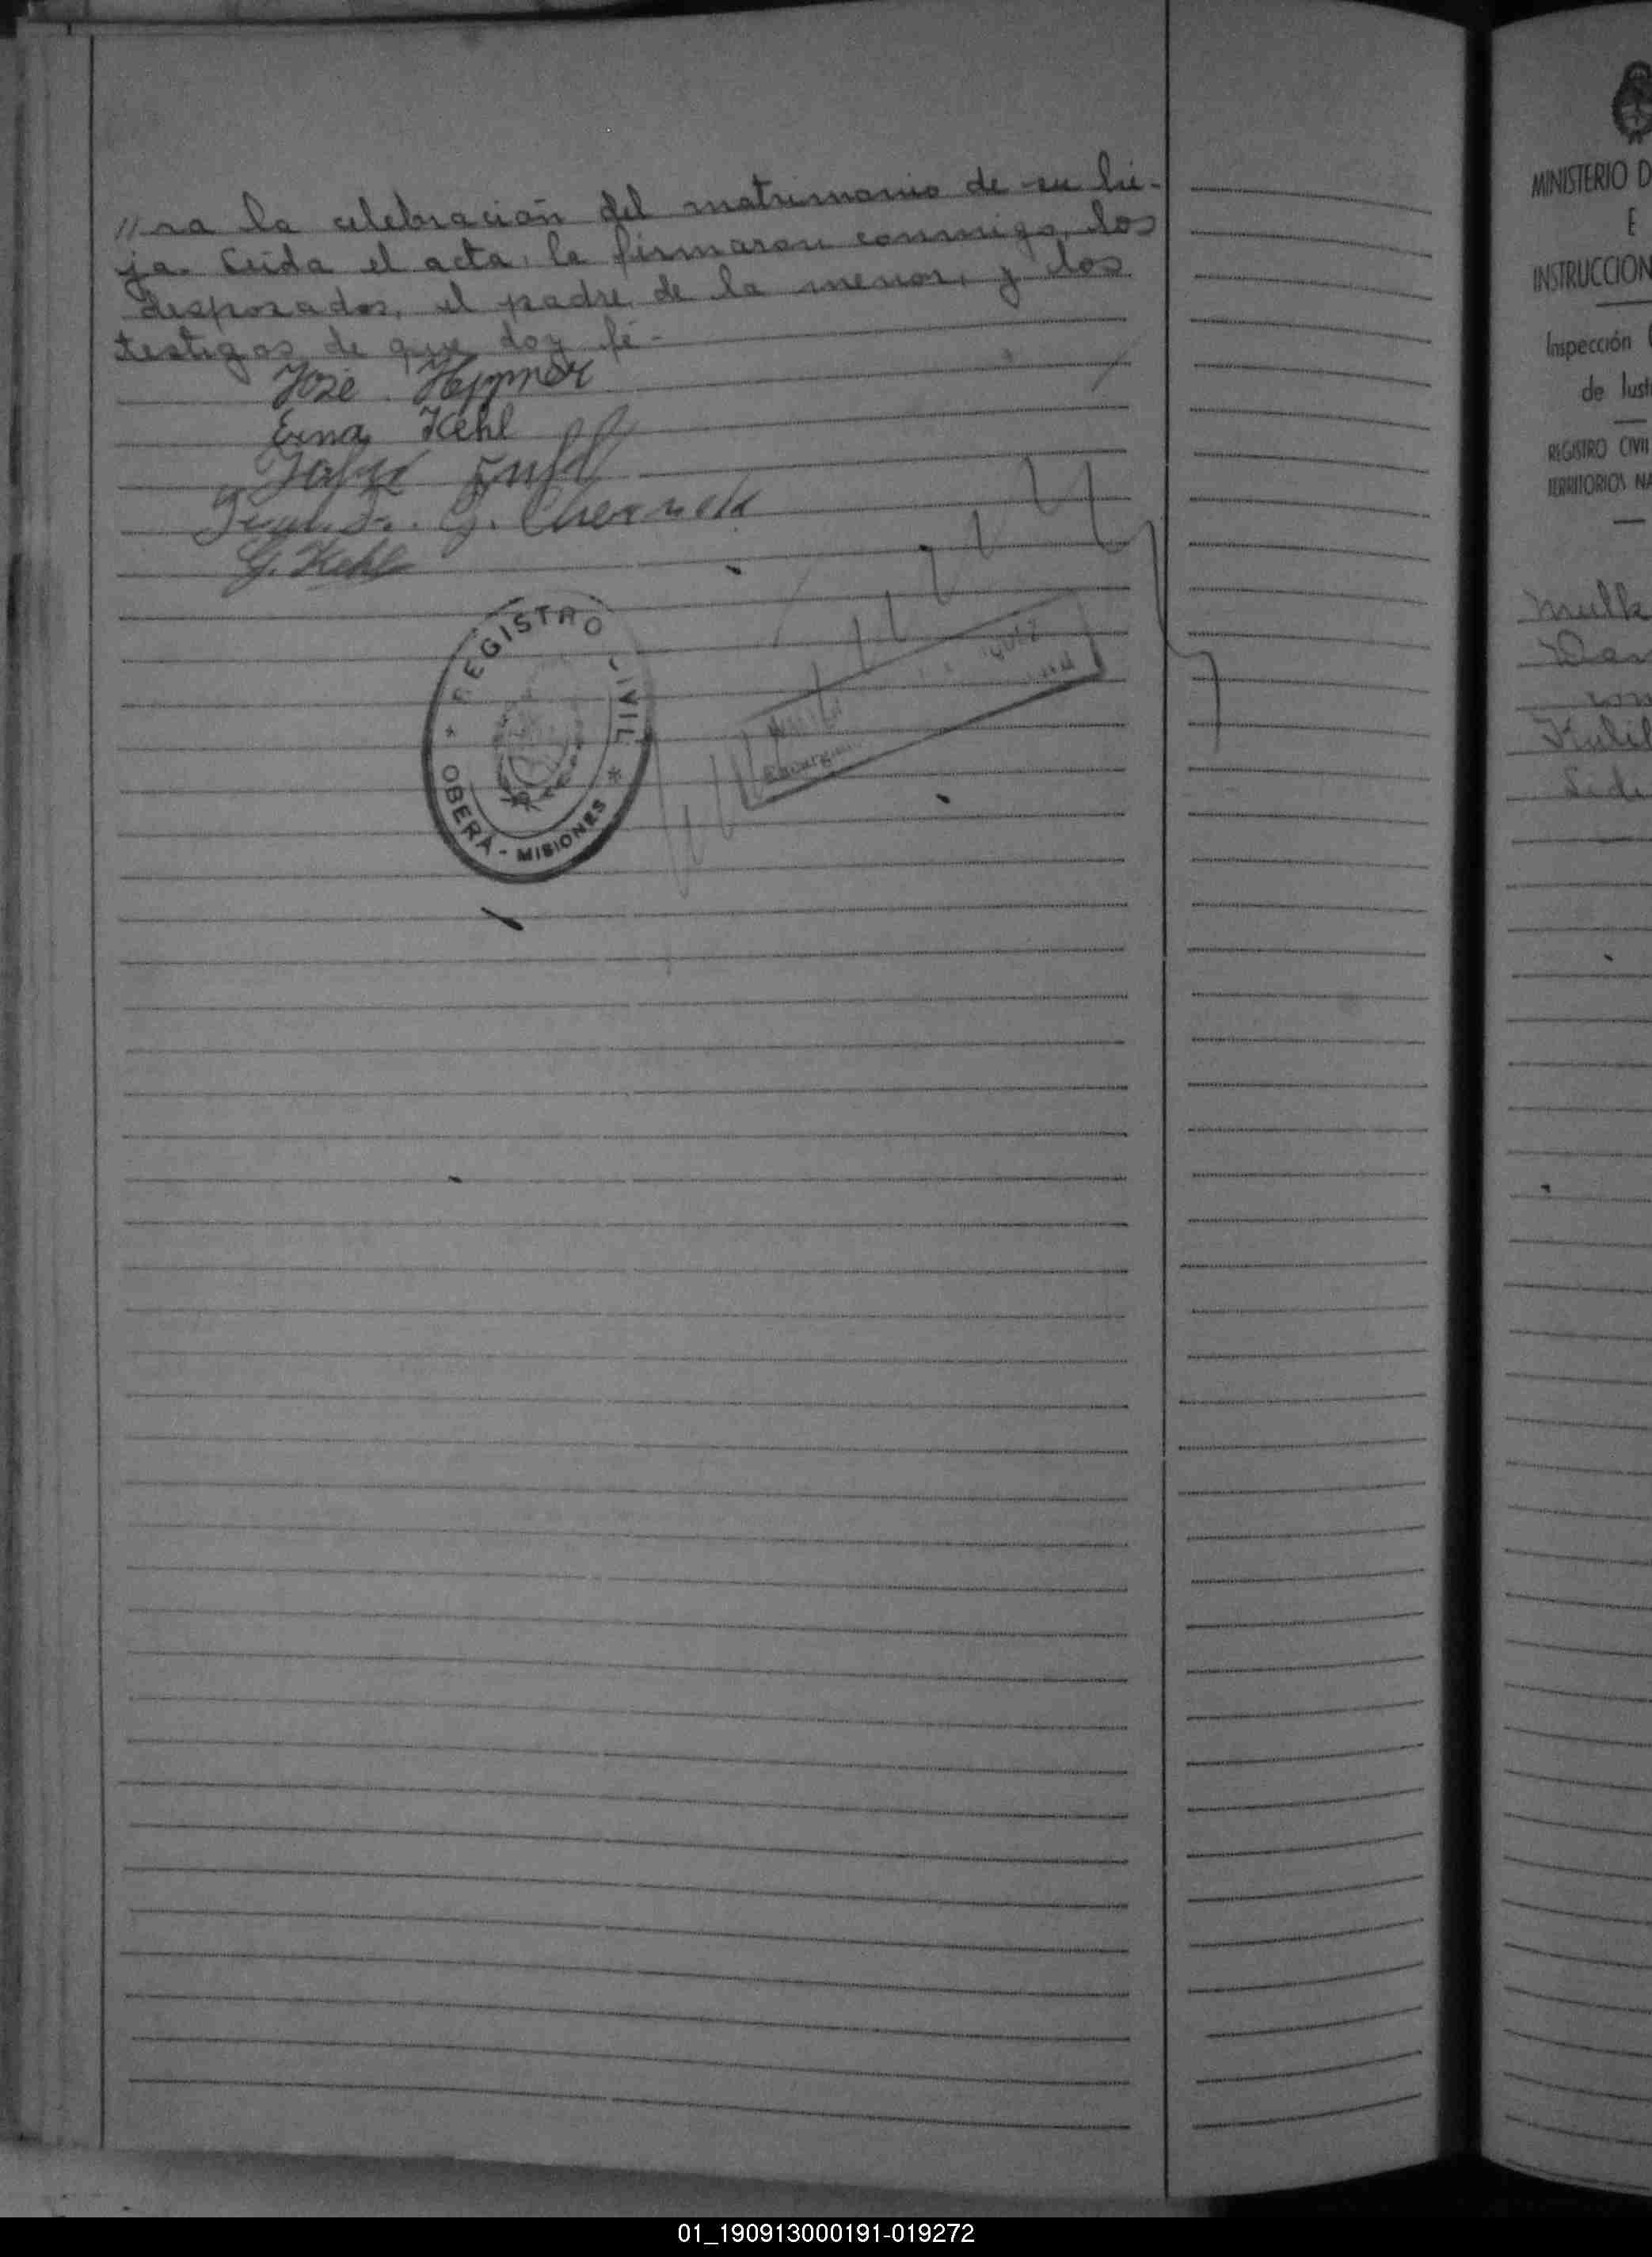 //ra la celebración del matrimonio de su hi-
ja. Leida el acta, la firmaron conmigo, los
desposados, el padre de la menor, y los
testigos de que doy fé-
José Heppner
Erna Kehl
G. Kehl
REGISTRO CIVIL
* OBERÁ - MISIONES *
Encargado
MINISTERIO D
E
INSTRUCCION
Inspección
de Just
REGISTRO CIVIL
TERRITORIOS NA
01_190913000191-019272